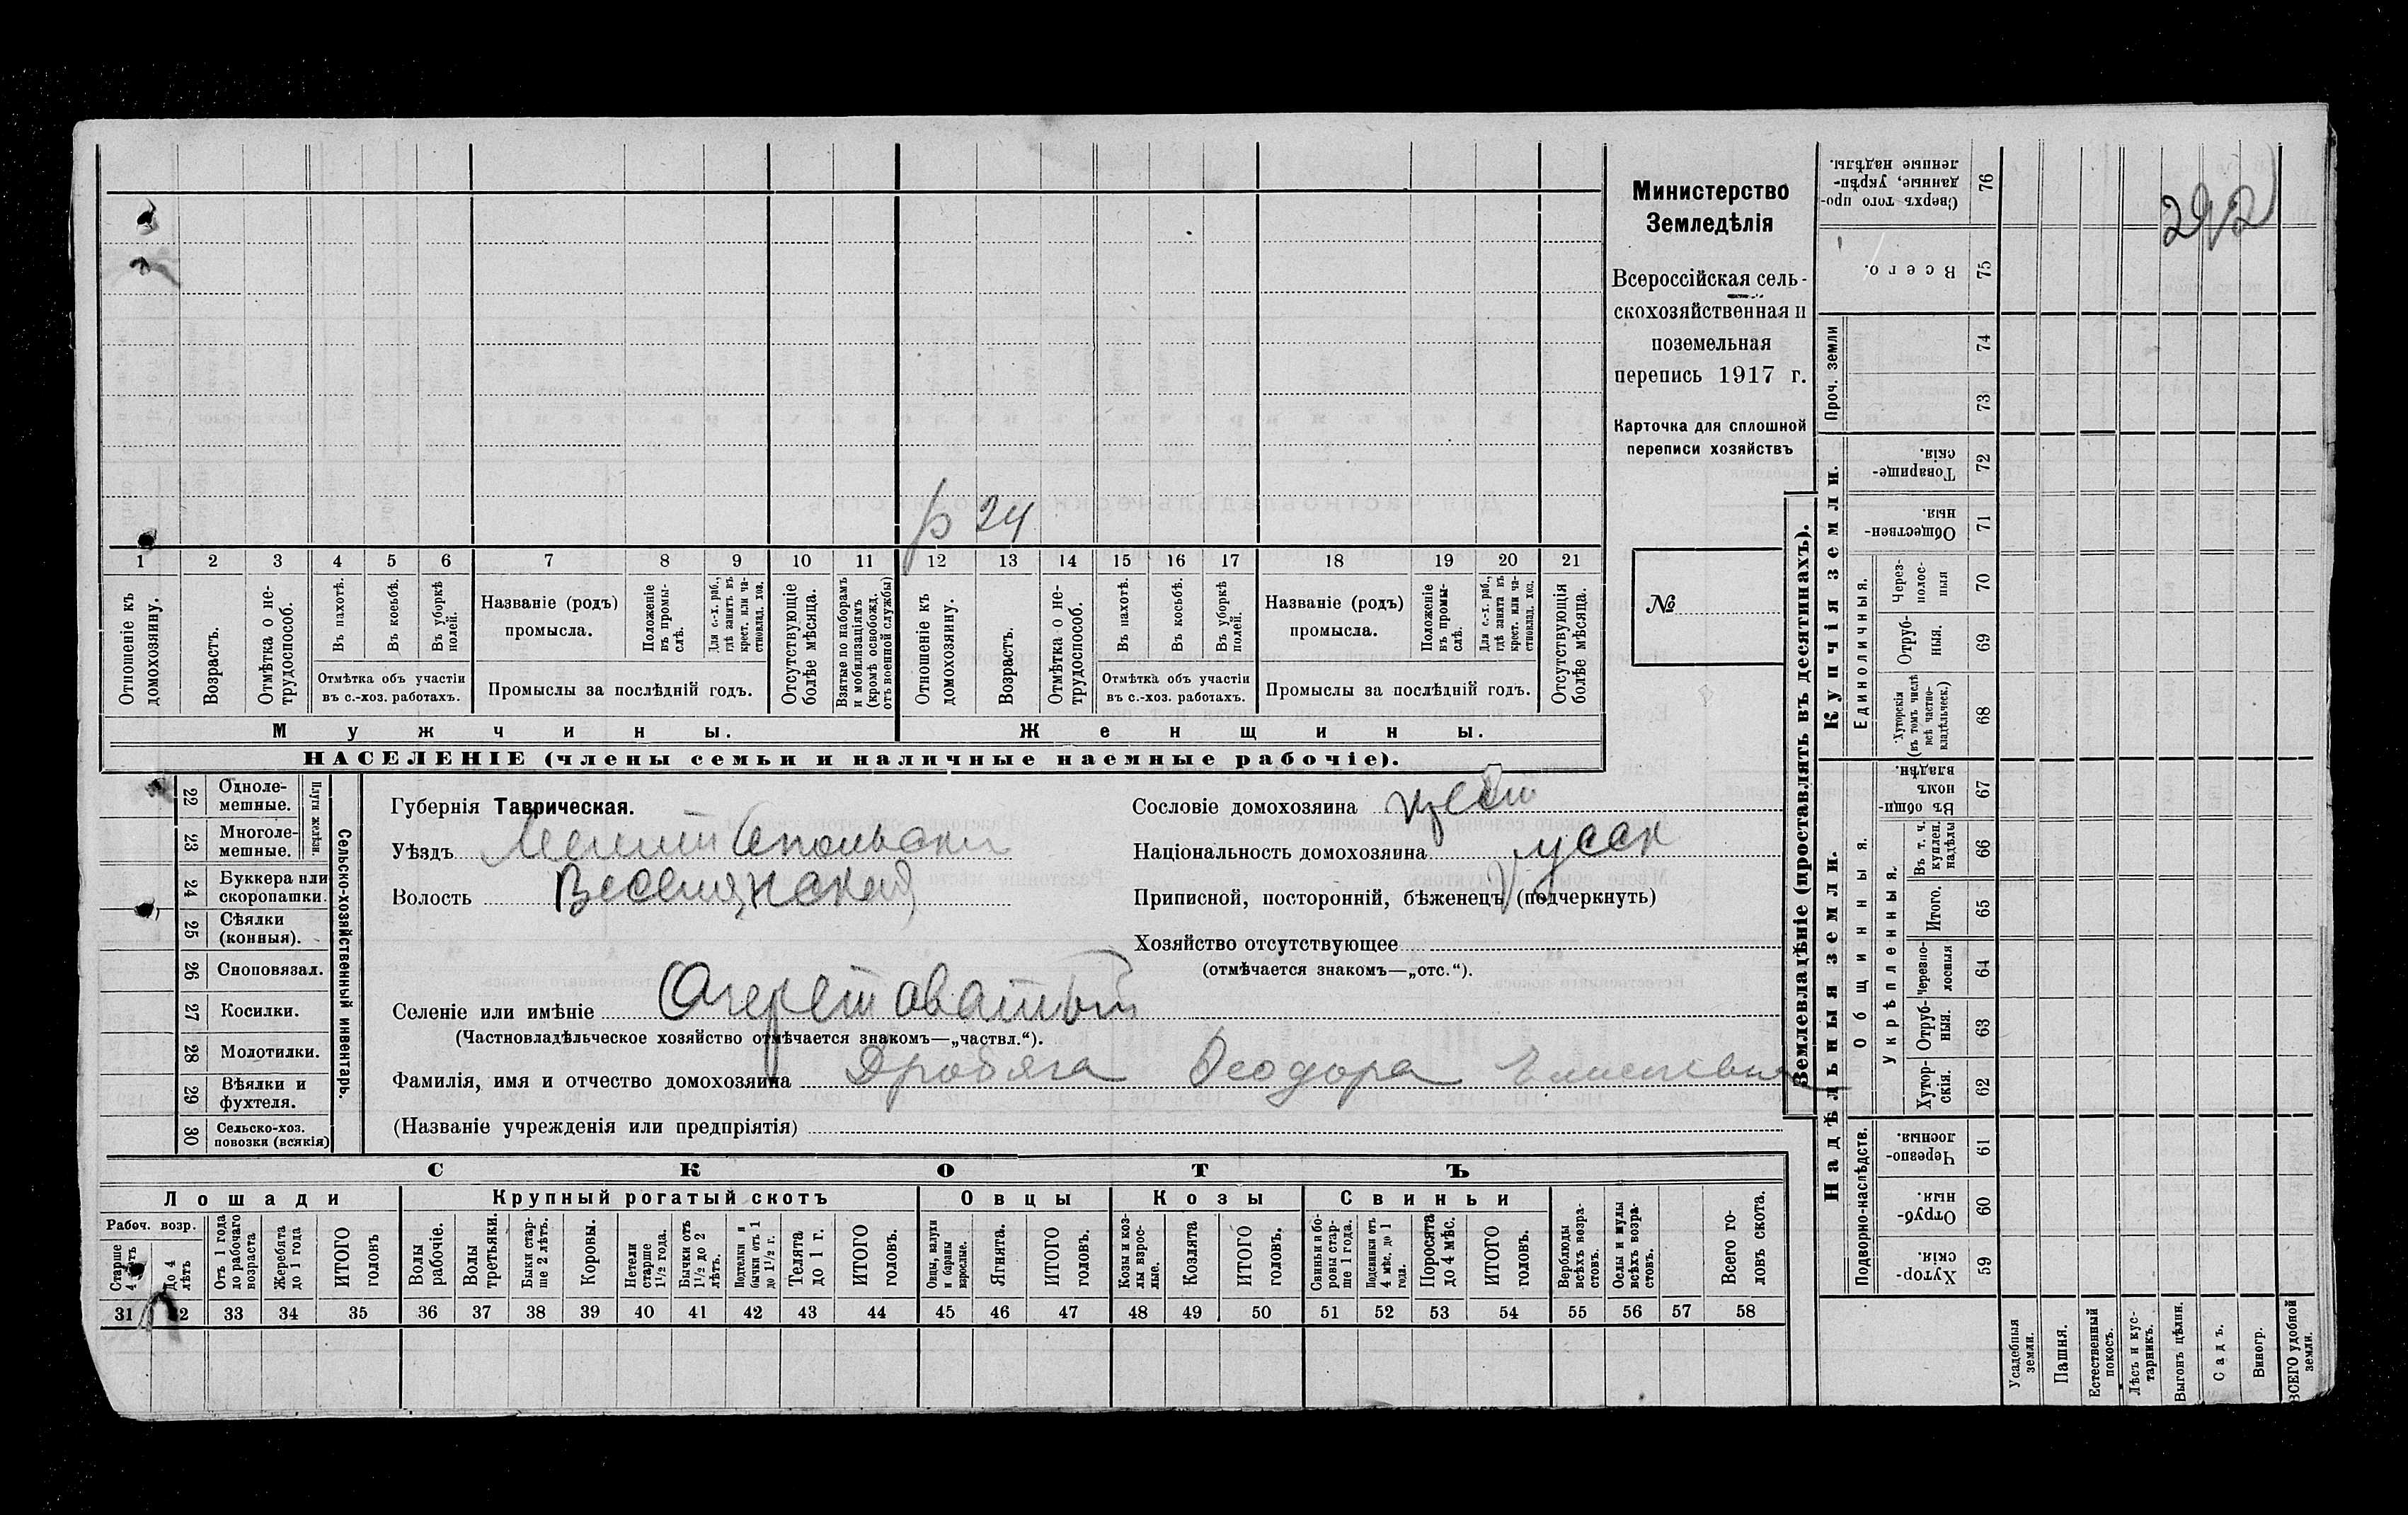 Министерство
Земледѣлія
Всероссійская сель-
скохозяйственная и
поземельная
перепись 1917 г.
Карточка для сплошной
переписи хозяйствъ
№
р 24
292
1 2 3 4 5 6 7 8 9 10 11 12 13 14 15 16 17 18 19 20 21
Отношеніе къ домохозяину.
Возрастъ.
Отмѣтка о не-трудоспособ.
Въ пахотѣ.
Въ косьбѣ.
Въ уборкѣ полей.
Отмѣтка объ участіи
въ с.-хоз. работахъ.
Названіе (родъ)
промысла.
Положеніе въ промы-слѣ.
Для с.-х. раб., гдѣ занятъ въ крест. или ча-стновлад. хоз.
Промыслы за послѣдній годъ.
Отсутствующіе болѣе мѣсяца.
Взятые по наборамъ и мобилизаціямъ (кромѣ освобожд. отъ военной службы)
Отношеніе къ домохозяину.
Возрастъ.
Отмѣтка о не-трудоспособ.
Въ пахотѣ.
Въ косьбѣ.
Въ уборкѣ полей.
Отмѣтка объ участіи
въ с.-хоз. работахъ.
Названіе (родъ)
промысла.
Положеніе въ промы-слѣ.
Для с.-х. раб., гдѣ занята въ крест. или ча-стновлад. хоз.
Промыслы за послѣдній годъ.
Отсутствующія болѣе мѣсяца.
Мужчины.
Женщины.
НАСЕЛЕНІЕ (члены семьи и наличные наемные рабочіе).
22 Однолемешные.
23 Многолемешные.
Плуги желѣзн.
24 Буккера или скоропашки.
25 Сѣялки (конныя).
26 Сноповязал.
27 Косилки.
28 Молотилки.
29 Вѣялки и фухтеля.
30 Сельско-хоз. повозки (всякія)
Сельско-хозяйственный инвентарь.
Губернія Таврическая.
Уѣздъ Мелитопольски
Волость Веселянская
Селеніе или имѣніе Очеретоватый
(Частновладѣльческое хозяйство отмѣчается знакомъ—„частвл.“).
Фамилія, имя и отчество домохозяина Дробяга Ѳеодора
(Названіе учрежденія или предпріятія)
Сословіе домохозяина
Національность домохозяина
Приписной, посторонній, бѣженецъ (подчеркнуть)
Хозяйство отсутствующее
(отмѣчается знакомъ—„отс.“).
СКОТЪ
Лошади
Крупный рогатый скотъ
Овцы
Козы
Свиньи
Рабоч. возр.
Старше 4 лѣтъ
До 4 лѣтъ
Отъ 1 года до рабочаго возраста
Жеребята до 1 года
ИТОГО головъ
Волы рабочіе.
Волы третьяки.
Быки стар-ше 2 лѣтъ.
Коровы.
Нетели старше 1½ года.
Бычки отъ 1½ до 2 лѣтъ.
Подтелки и бычки отъ 1 до 1½ г.
Телята до 1 г.
ИТОГО головъ.
Овцы, валухи и бараны взрослые.
Ягнята.
ИТОГО головъ.
Козы и коз-лы взрос-лые.
Козлята
ИТОГО головъ.
Свиньи и бо-ровы стар-ше 1 года.
Подсвинки отъ 4 мѣс. до 1 года.
Поросята до 4 мѣс.
ИТОГО головъ.
Верблюды всѣхъ возра-стовъ.
Ослы и мулы всѣхъ возра-стовъ.
Всего го-ловъ скота.
31 32 33 34 35 36 37 38 39 40 41 42 43 44 45 46 47 48 49 50 51 52 53 54 55 56 57 58
Землевладѣніе (проставлять въ десятинахъ).
Купчія земли.
Надѣльныя земли.
Сверхъ того про-данные, укрѣп-ленные надѣлы. 76
Всего. 75
Проч. земли
74
73
Товарище-скія. 72
Обществен-ныя. 71
Единоличныя.
Через-полос-ныя 70
Отруб-ныя. 69
Хуторскія (въ томъ числѣ всѣ частно-владѣльческ.) 68
Общинныя.
Въ общин-номъ владѣн. 67
Укрѣпленныя.
Въ т. ч. куплен. надѣлы 66
Итого. 65
Черезпо-лосныя 64
Отруб-ныя. 63
Хутор-скія. 62
Подворно-наслѣдств.
Черезпо-лосныя. 61
Отруб-ныя. 60
Хутор-скія. 59
Усадебныя земли.
Пашня.
Естественный покосъ.
Лѣсъ и кус-тарникъ.
Выгонъ цѣлин.
Садъ.
Виногр.
ВСЕГО удобной земли.